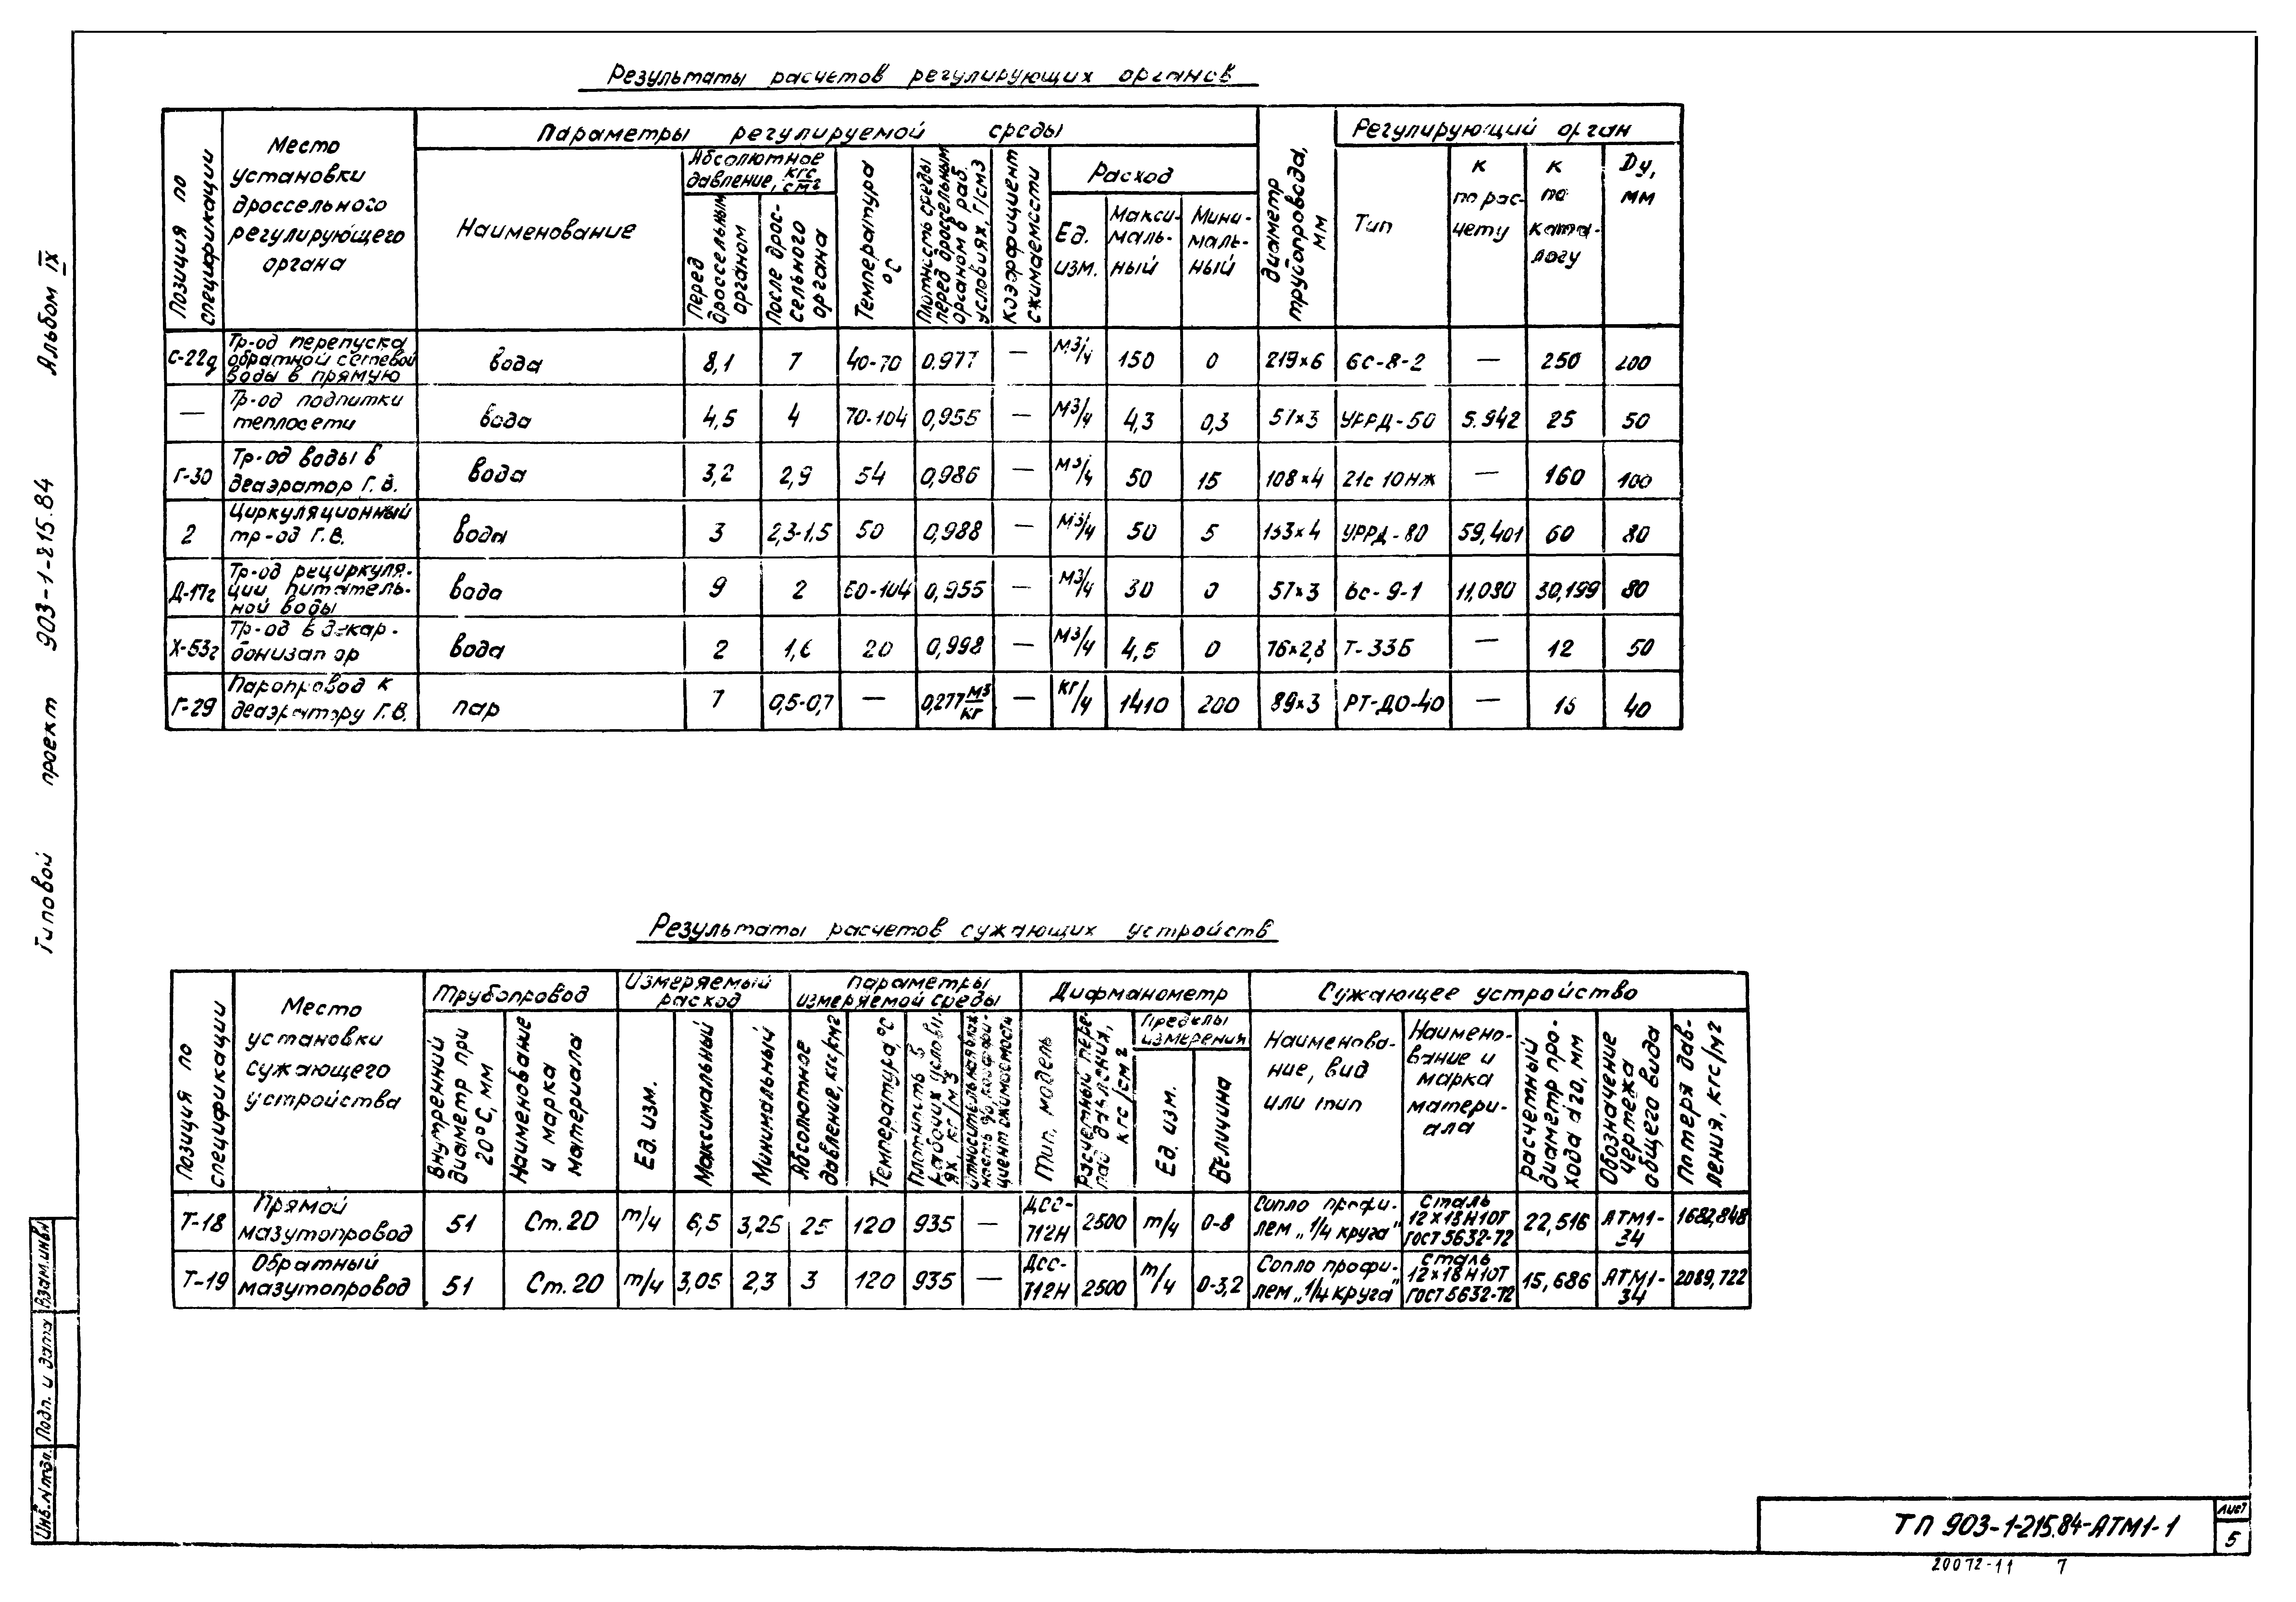 Результаты расчетов регулирующих органов
Позиция по спецификации
Место установки дроссельного регулирующего органа
Параметры регулируемой среды
Наименование
Абсолютное давление, кгс/см2
Перед дроссельным органом
После дроссельного органа
Температура °С
Плотность среды перед дроссельным органом в раб. условиях, г/см3
Коэффициент сжимаемости
Расход
Ед. изм.
Максимальный
Минимальный
Диаметр трубопровода, мм
Регулирующий орган
Тип
К по расчету
К по каталогу
Dу, мм
С-22д Тр-од перепуска обратной сетевой воды в прямую вода 8,1 7 40-70 0.977 — м3/ч 150 0 219×6 6с-8-2 — 250 200
— Тр-од подпитки теплосети вода 4,5 4 70-104 0,955 — м3/ч 4,3 0,3 57×3 УРРД-50 5.942 25 50
Г-30 Тр-од воды в деаэратор Г.В. вода 3,2 2,9 54 0,986 — м3/ч 50 15 108×4 21с 10нж — 160 100
2 Циркуляционный тр-од Г.В. вода 3 2,3-1,5 50 0,988 — м3/ч 50 5 133×4 УРРД-80 59,401 60 80
Д-17г Тр-од рециркуляции питательной воды вода 9 2 60-104 0,955 — м3/ч 30 0 57×3 6с-9-1 11,080 30,199 80
Х-53г Тр-од в декарбонизатор вода 2 1,6 20 0,998 — м3/ч 4,5 0 76×2,8 Т-33Б — 12 50
Г-29 Паропровод к деаэратору Г.В. пар 7 0,5-0,7 — 0,277 м3/кг — кг/ч 1410 200 89×3 РТ-ДО-40 — 16 40
Результаты расчетов сужающих устройств
Позиция по спецификации
Место установки сужающего устройства
Трубопровод
Внутренний диаметр при 20°С, мм
Наименование и марка материала
Измеряемый расход
Ед. изм.
Максимальный
Минимальный
Параметры измеряемой среды
Абсолютное давление, кгс/см2
Температура °С
Плотность в рабочих условиях, кг/м3
Относительная влажность φ, коэффициент сжимаемости
Дифманометр
Тип, модель
Расчетный перепад давления, кгс/см2
Пределы измерения
Ед. изм.
Величина
Сужающее устройство
Наименование, вид или тип
Наименование и марка материала
Расчетный диаметр прохода d20, мм
Обозначение чертежа общего вида
Потеря давления, кгс/м2
Т-18 Прямой мазутопровод 51 Ст.20 т/ч 6,5 3,25 25 120 935 — ДСС-712Н 2500 т/ч 0-8 Сопло профилем „1/4 круга" Сталь 12×18Н10Т ГОСТ 5632-72 22,516 АТМ1-34 1682,848
Т-19 Обратный мазутопровод 51 Ст.20 т/ч 3,05 2,3 3 120 935 — ДСС-712Н 2500 т/ч 0-3,2 Сопло профилем „1/4 круга" Сталь 12×18Н10Т ГОСТ 5632-72 15,686 АТМ1-34 2089,722
Типовой проект 903-1-215.84 Альбом IX
Взам.инв.N
Подп. и дата
Инв.N подл.
ТП 903-1-215.84-АТМ1-1
Лист
5
20072-11 7